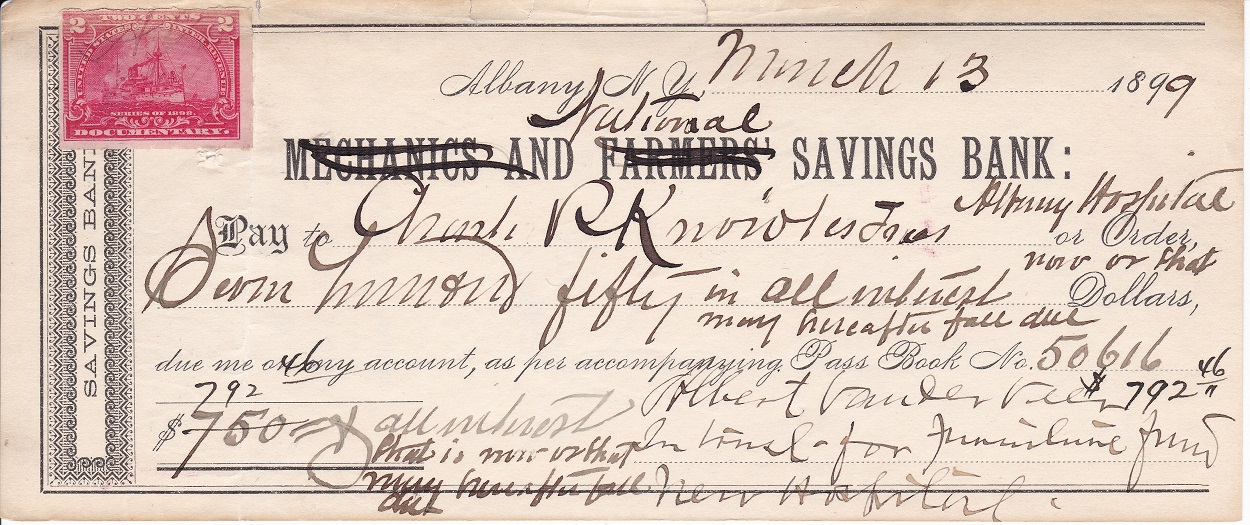 2 TWO CENTS 2
UNITED STATES INTER. REVENUE
SERIES OF 1898
DOCUMENTARY.
SAVINGS BANK
Albany, N. Y. March 13 1899
National
MECHANICS AND FARMERS' SAVINGS BANK:
Albany Hospital
Pay to Charles P Knowles Treas or Order,
now or that
Seven hundred fifty in all interest Dollars,
may hereafter fall due
due me on my account, as per accompanying Pass Book No. 50616
792 46
Albert Vander Veer $ 792 46
$ 750 & all interest In trust for furniture fund
that is now or that
may hereafter fall New Hospital.
due